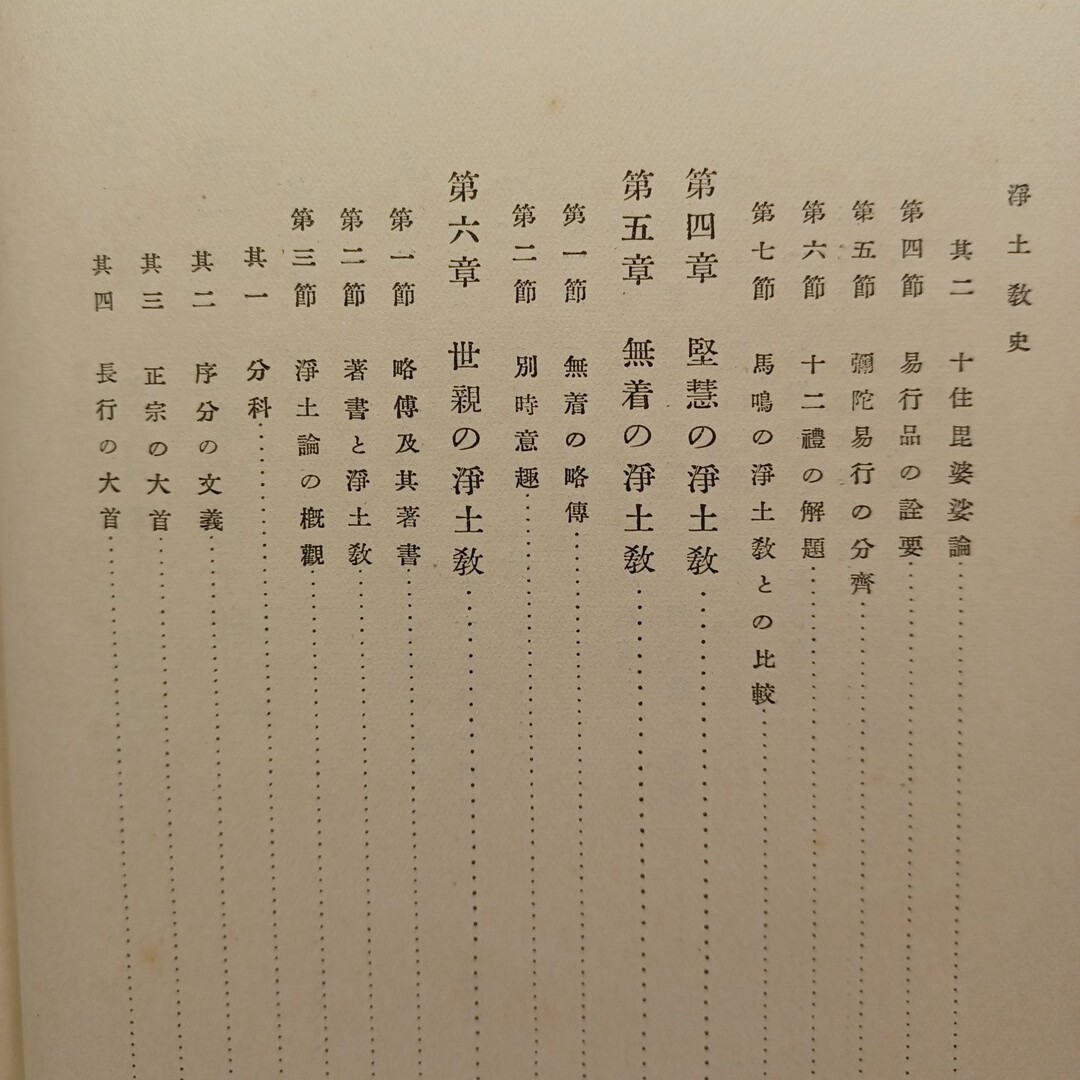 淨土敎史
其二 十住毘婆娑論
第四節 易行品の詮要
第五節 彌陀易行の分齊
第六節 十二禮の解題
第七節 馬鳴の淨土敎との比較
第四章 堅慧の淨土敎
第五章 無着の淨土敎
第一節 無着の略傳
第二節 別時意趣
第六章 世親の淨土敎
第一節 略傳及其著書
第二節 著書と淨土敎
第三節 淨土論の槪觀
其一 分科
其二 序分の文義
其三 正宗の大首
其四 長行の大首